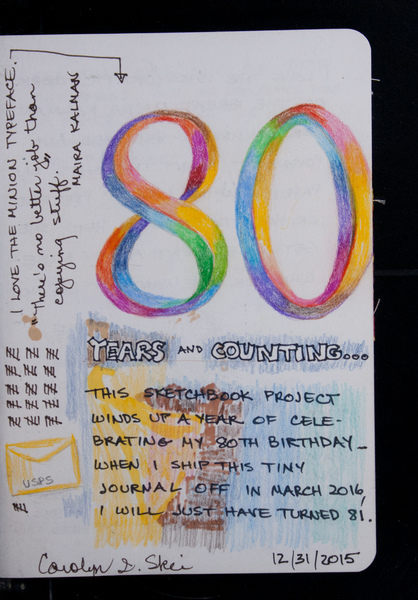 I LOVE THE MINION TYPEFACE.
"There's no better job than
copying stuff.
MAIRA KALMAN
80
YEARS AND COUNTING...
THIS SKETCHBOOK PROJECT
WINDS UP A YEAR OF CELE-
BRATING MY 80TH BIRTHDAY_
WHEN I SHIP THIS TINY
JOURNAL OFF IN MARCH 2016,
I WILL JUST HAVE TURNED 81.
USPS
Carolyn
12/31/2015